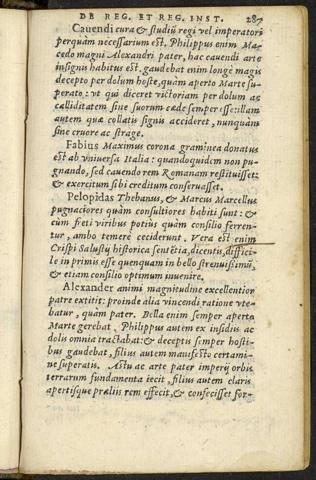 DE REG. ET REG. INST. 287
Cauendi cura & studiū regi vel imperatori
perquàm necessarium est. Philippus enim Ma-
cedo magni Alexandri pater, hac cauendi arte
insignis habitus est, gaudebat enim longè magis
decepto per dolum hoste, quàm aperto Marte su-
perato: vt qui diceret victoriam per dolum ac
calliditatem sine suorum cæde semper esse: illam
autem quæ collatis signis accideret, nunquàm
sine cruore ac strage.
Fabius Maximus corona graminea donatus
est ab vniuersa Italia: quandoquidem non pu-
gnando, sed cauendo rem Romanam restituisset:
& exercitum sibi creditum conseruasset.
Pelopidas Thebanus, & Marcus Marcellus
pugnaciores quàm consultiores habiti sunt: &
cùm freti viribus potius quàm consilio ferren-
tur, ambo temerè ceciderunt. Vera est enim
Crispi Salustij historica sentētia, dicentis, diffici-
le in primis esse quenquam in bello strenuissimū,
& etiam consilio optimum inuenire.
Alexander animi magnitudine excellentior
patre extitit: proinde alia vincendi ratione vte-
batur, quam pater. Bella enim semper aperto
Marte gerebat, Philippus autem ex insidijs ac
dolis omnia tractabat: & deceptis semper hosti-
bus gaudebat, filius autem manifesto certami-
ne superatis. Astu ac arte pater imperij orbis
terrarum fundamenta iecit, filius autem claris
apertisque prælijs rem effecit, & confecisset for-